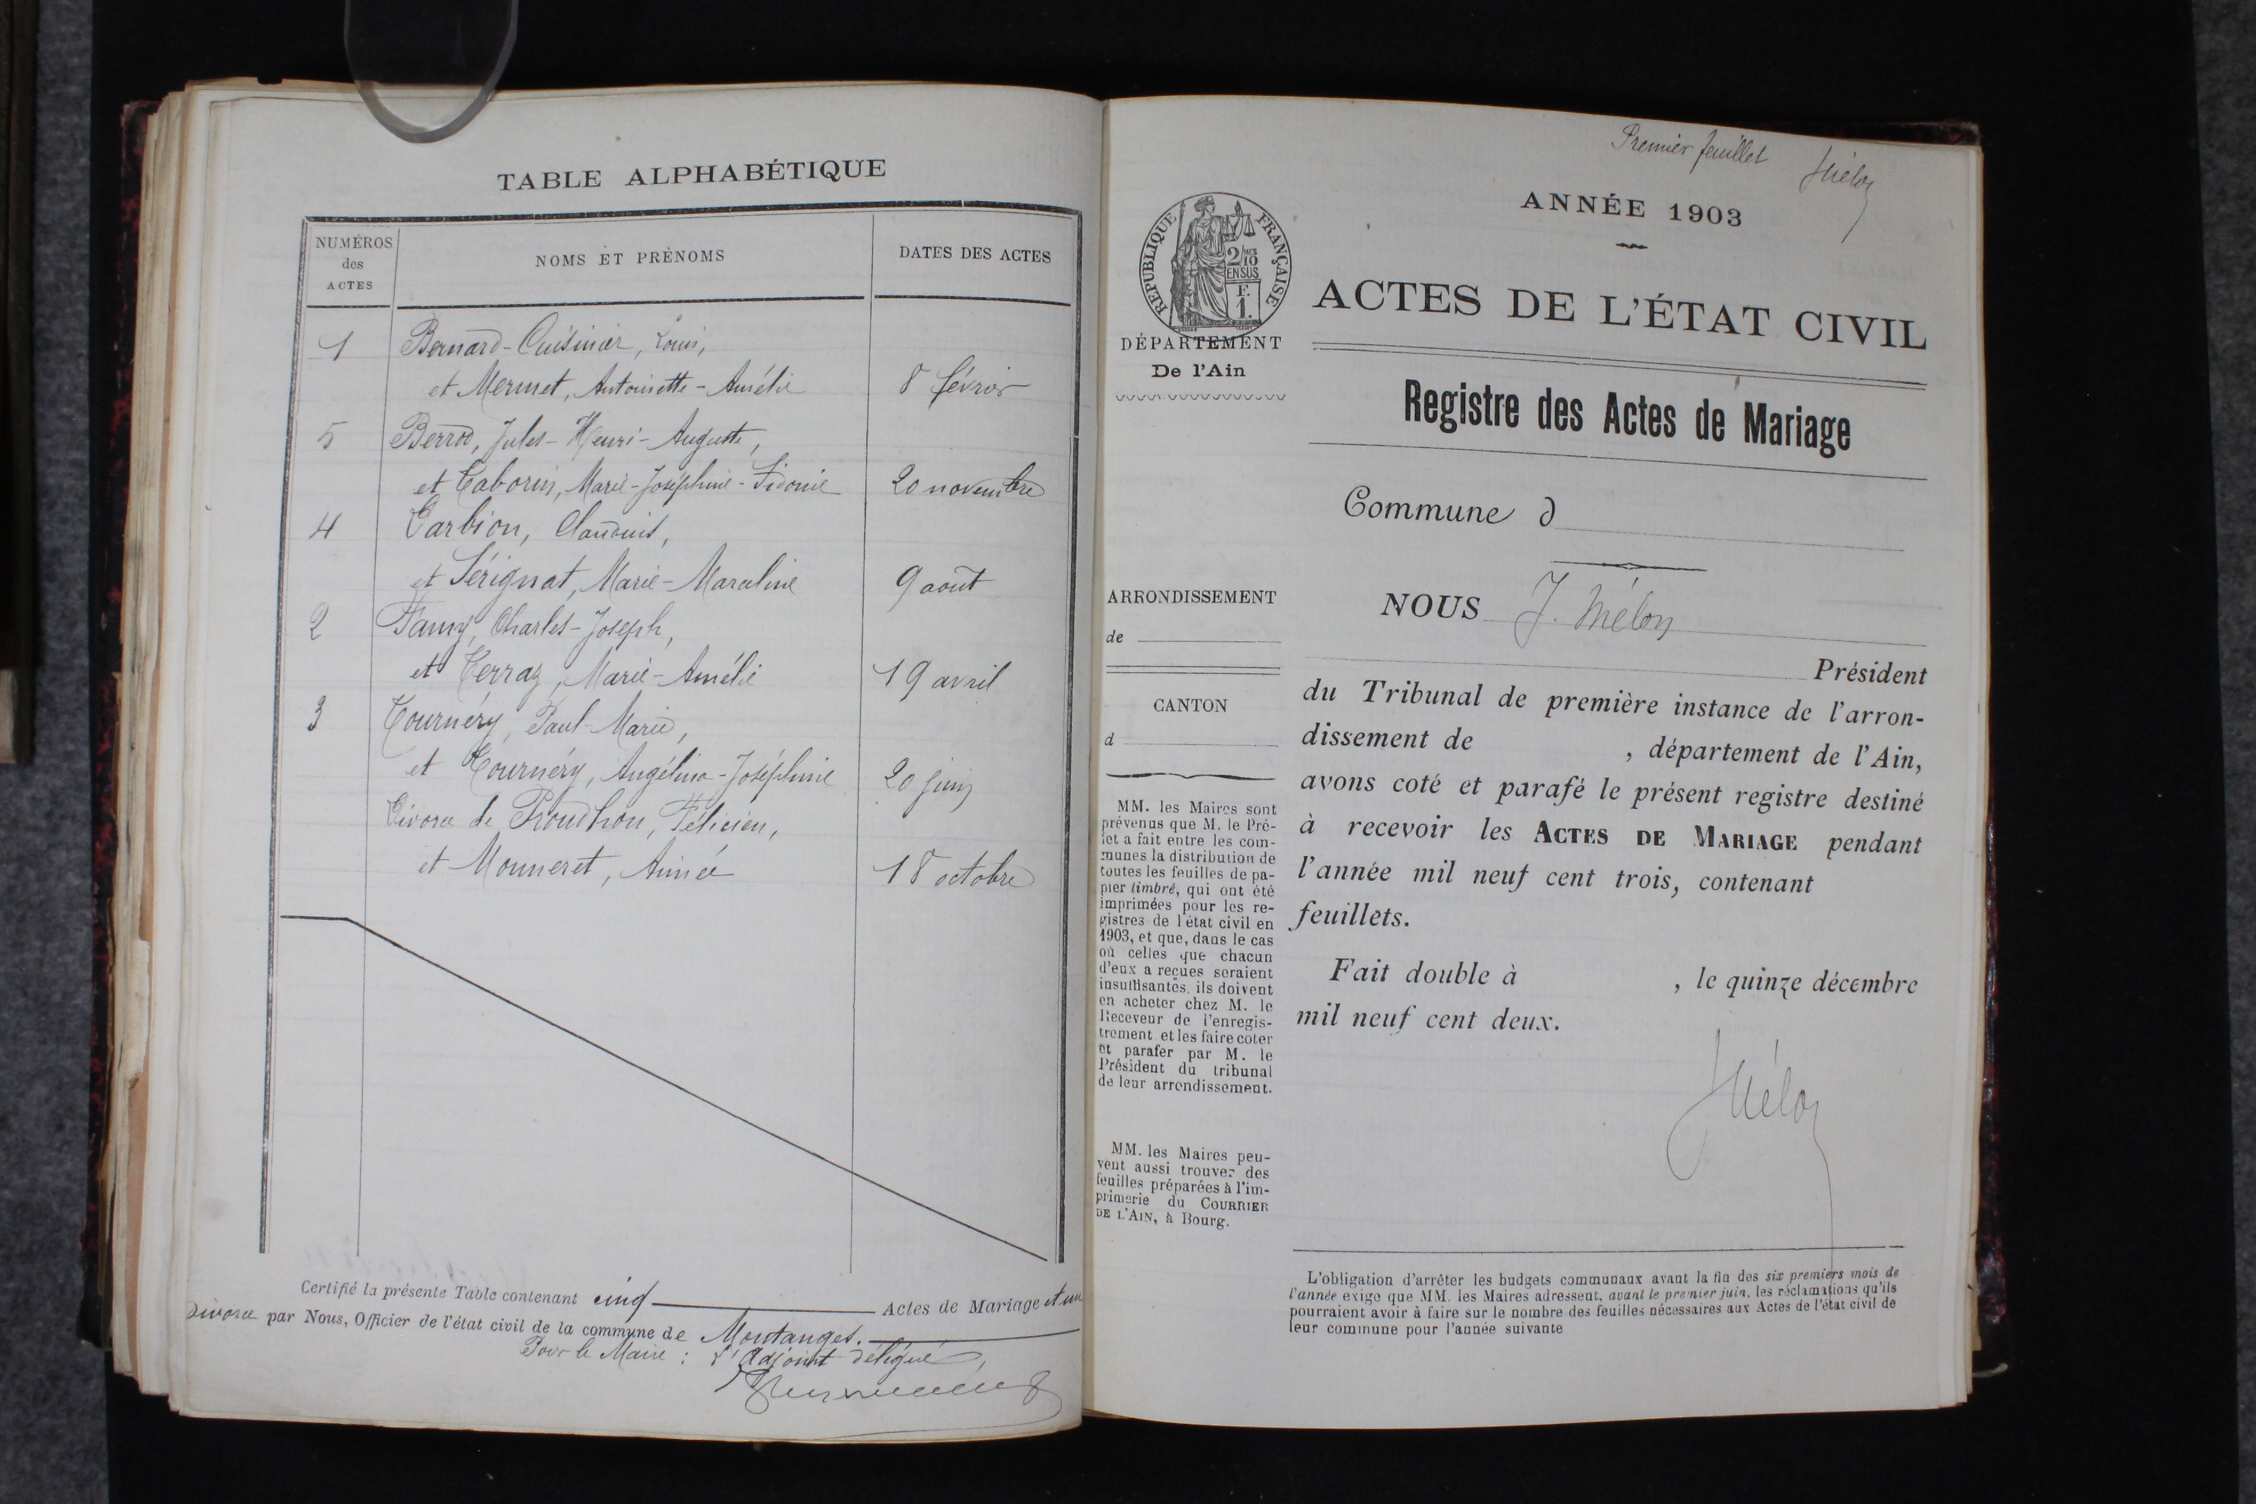 TABLE ALPHABÉTIQUE
NUMÉROS
des
ACTES
NOMS ET PRÉNOMS
DATES DES ACTES
1 Bernard-Cuisinier, Louis,
et Mermet, Antoinette-Amélie 8 février
5 Berrod, Jules-Henri-Auguste,
et Taborin, Marie-Joséphine-Sidonie 20 novembre
4 Carbion, Claudius,
et Sérignat, Marie-Maraline 9 août
2 Famy, Charles-Joseph,
et Terraz, Marie-Amélie 19 avril
3 Tournéry, Paul-Marie,
et Tournéry, Angélina-Joséphine 20 juin
Divorce de Proudhon, Félicien,
et Monneret, Aimée 18 octobre
Certifié la présente Table contenant cinq Actes de Mariage et un
divorce par Nous, Officier de l'état civil de la commune de Montanges.
Pour le Maire : L'adjoint délégué,
Premier feuillet Mélon
ANNÉE 1903
RÉPUBLIQUE FRANÇAISE
2/10
EN SUS
F.
1.
ACTES DE L'ÉTAT CIVIL
DÉPARTEMENT
De l'Ain
Registre des Actes de Mariage
Commune d
ARRONDISSEMENT
de
CANTON
d
MM. les Maires sont
prévenus que M. le Pré-
fet a fait entre les com-
munes la distribution de
toutes les feuilles de pa-
pier timbré, qui ont été
imprimées pour les re-
gistres de l'état civil en
1903, et que, dans le cas
où celles que chacun
d'eux a reçues seraient
insuffisantes, ils doivent
en acheter chez M. le
Receveur de l'enregis-
trement et les faire coter
et parafer par M. le
Président du tribunal
de leur arrondissement.
MM. les Maires peu-
vent aussi trouver des
feuilles préparées à l'im-
primerie du COURRIER
DE L'AIN, à Bourg.
NOUS J. Mélon
Président
du Tribunal de première instance de l'arron-
dissement de , département de l'Ain,
avons coté et parafé le présent registre destiné
à recevoir les ACTES DE MARIAGE pendant
l'année mil neuf cent trois, contenant
feuillets.
Fait double à , le quinze décembre
mil neuf cent deux.
Mélon
L'obligation d'arrêter les budgets communaux avant la fin des six premiers mois de
l'année exige que MM. les Maires adressent, avant le premier juin, les réclamations qu'ils
pourraient avoir à faire sur le nombre des feuilles nécessaires aux Actes de l'état civil de
leur commune pour l'année suivante